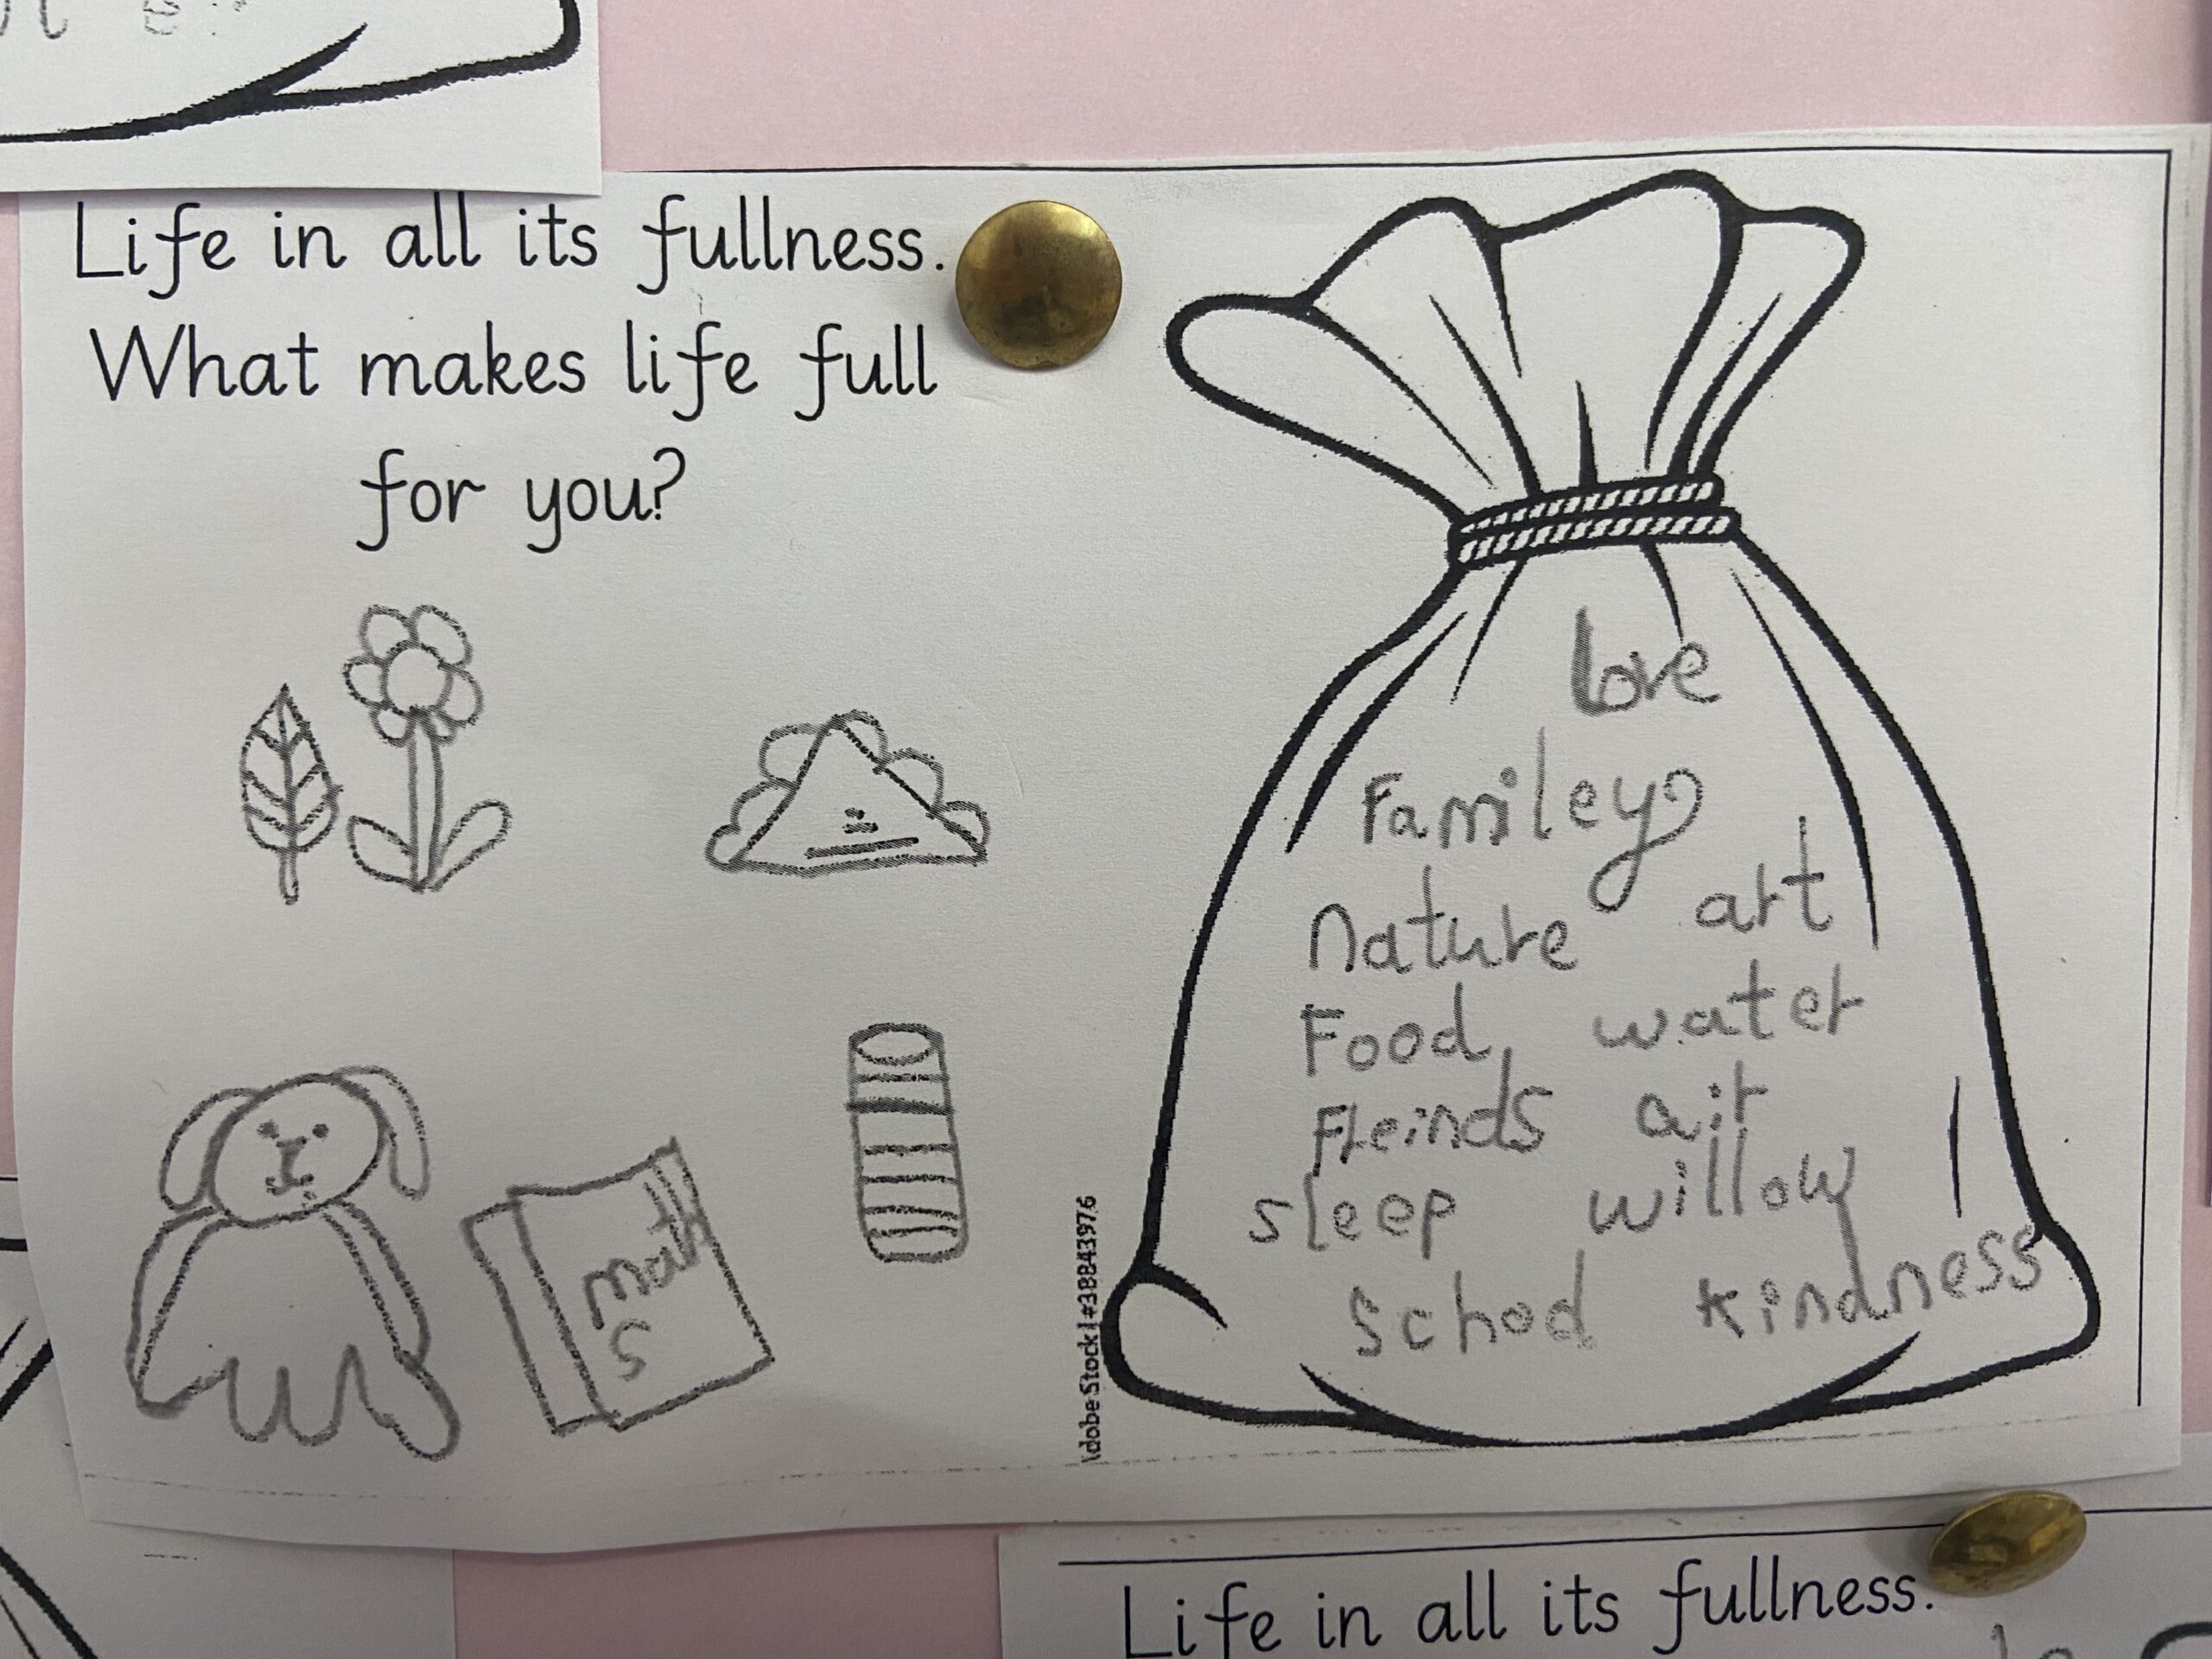 Life in all its fullness.
What makes life full
for you?
love
Familey
nature art
Food water
Freinds air
sleep willow
School kindness
math
s
Adobe Stock | #388443976
Life in all its fullness.